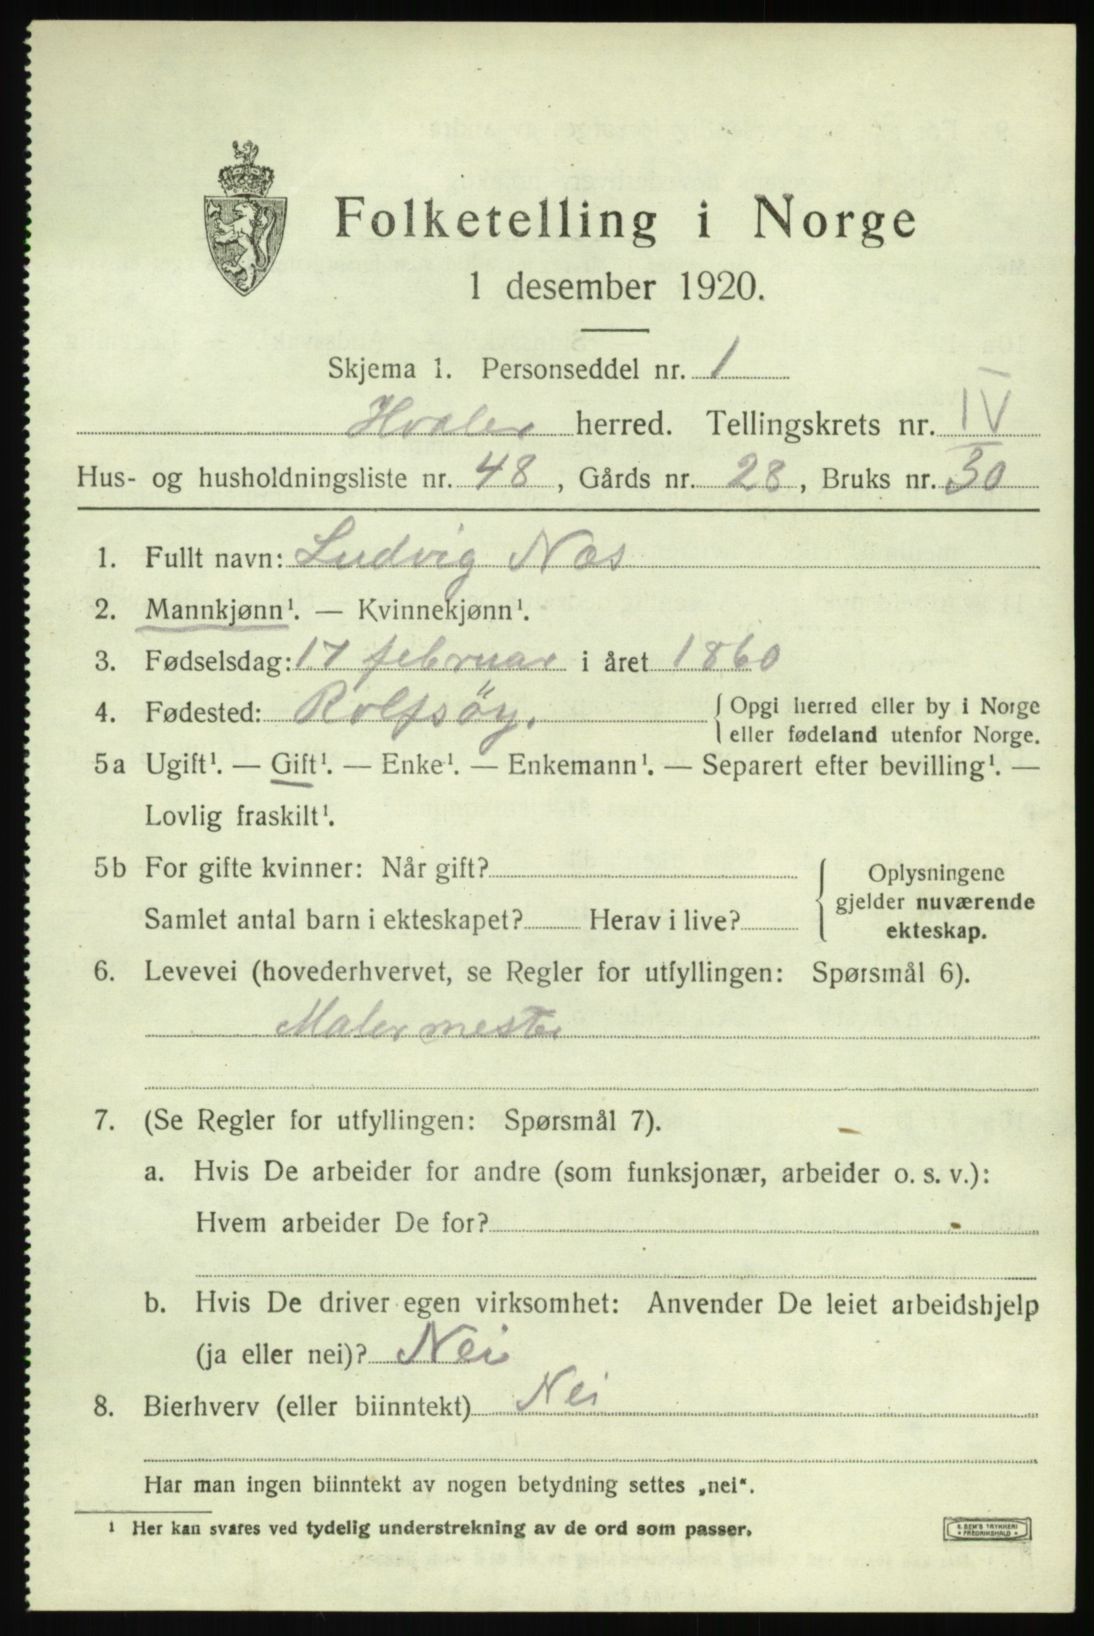 Folketelling i Norge
1 desember 1920.
Skjema 1. Personseddel nr. 1
Hvaler herred. Tellingskrets nr. IV
Hus- og husholdningsliste nr. 48, Gårds nr. 28, Bruks nr. 30
1. Fullt navn: Ludvig Næs
2. Mannkjønn¹. — Kvinnekjønn¹.
3. Fødselsdag: 17 februar i året 1860
4. Fødested: Rolfsøy. { Opgi herred eller by i Norge
eller fødeland utenfor Norge.
5a Ugift¹. — Gift¹. — Enke¹. — Enkemann¹. — Separert efter bevilling¹. —
Lovlig fraskilt¹.
5b For gifte kvinner: Når gift? { Oplysningene
gjelder nuværende
Samlet antal barn i ekteskapet? Herav i live?
ekteskap.
6. Levevei (hovederhvervet, se Regler for utfyllingen: Spørsmål 6).
Malermester
7. (Se Regler for utfyllingen: Spørsmål 7).
a. Hvis De arbeider for andre (som funksjonær, arbeider o. s. v.):
Hvem arbeider De for?
b. Hvis De driver egen virksomhet: Anvender De leiet arbeidshjelp
(ja eller nei)? Nei
8. Bierhverv (eller biinntekt) Nei
Har man ingen biinntekt av nogen betydning settes „nei“.
¹ Her kan svares ved tydelig understrekning av de ord som passer.
E. SEM'S TRYKKERI
FREDRIKSHALD